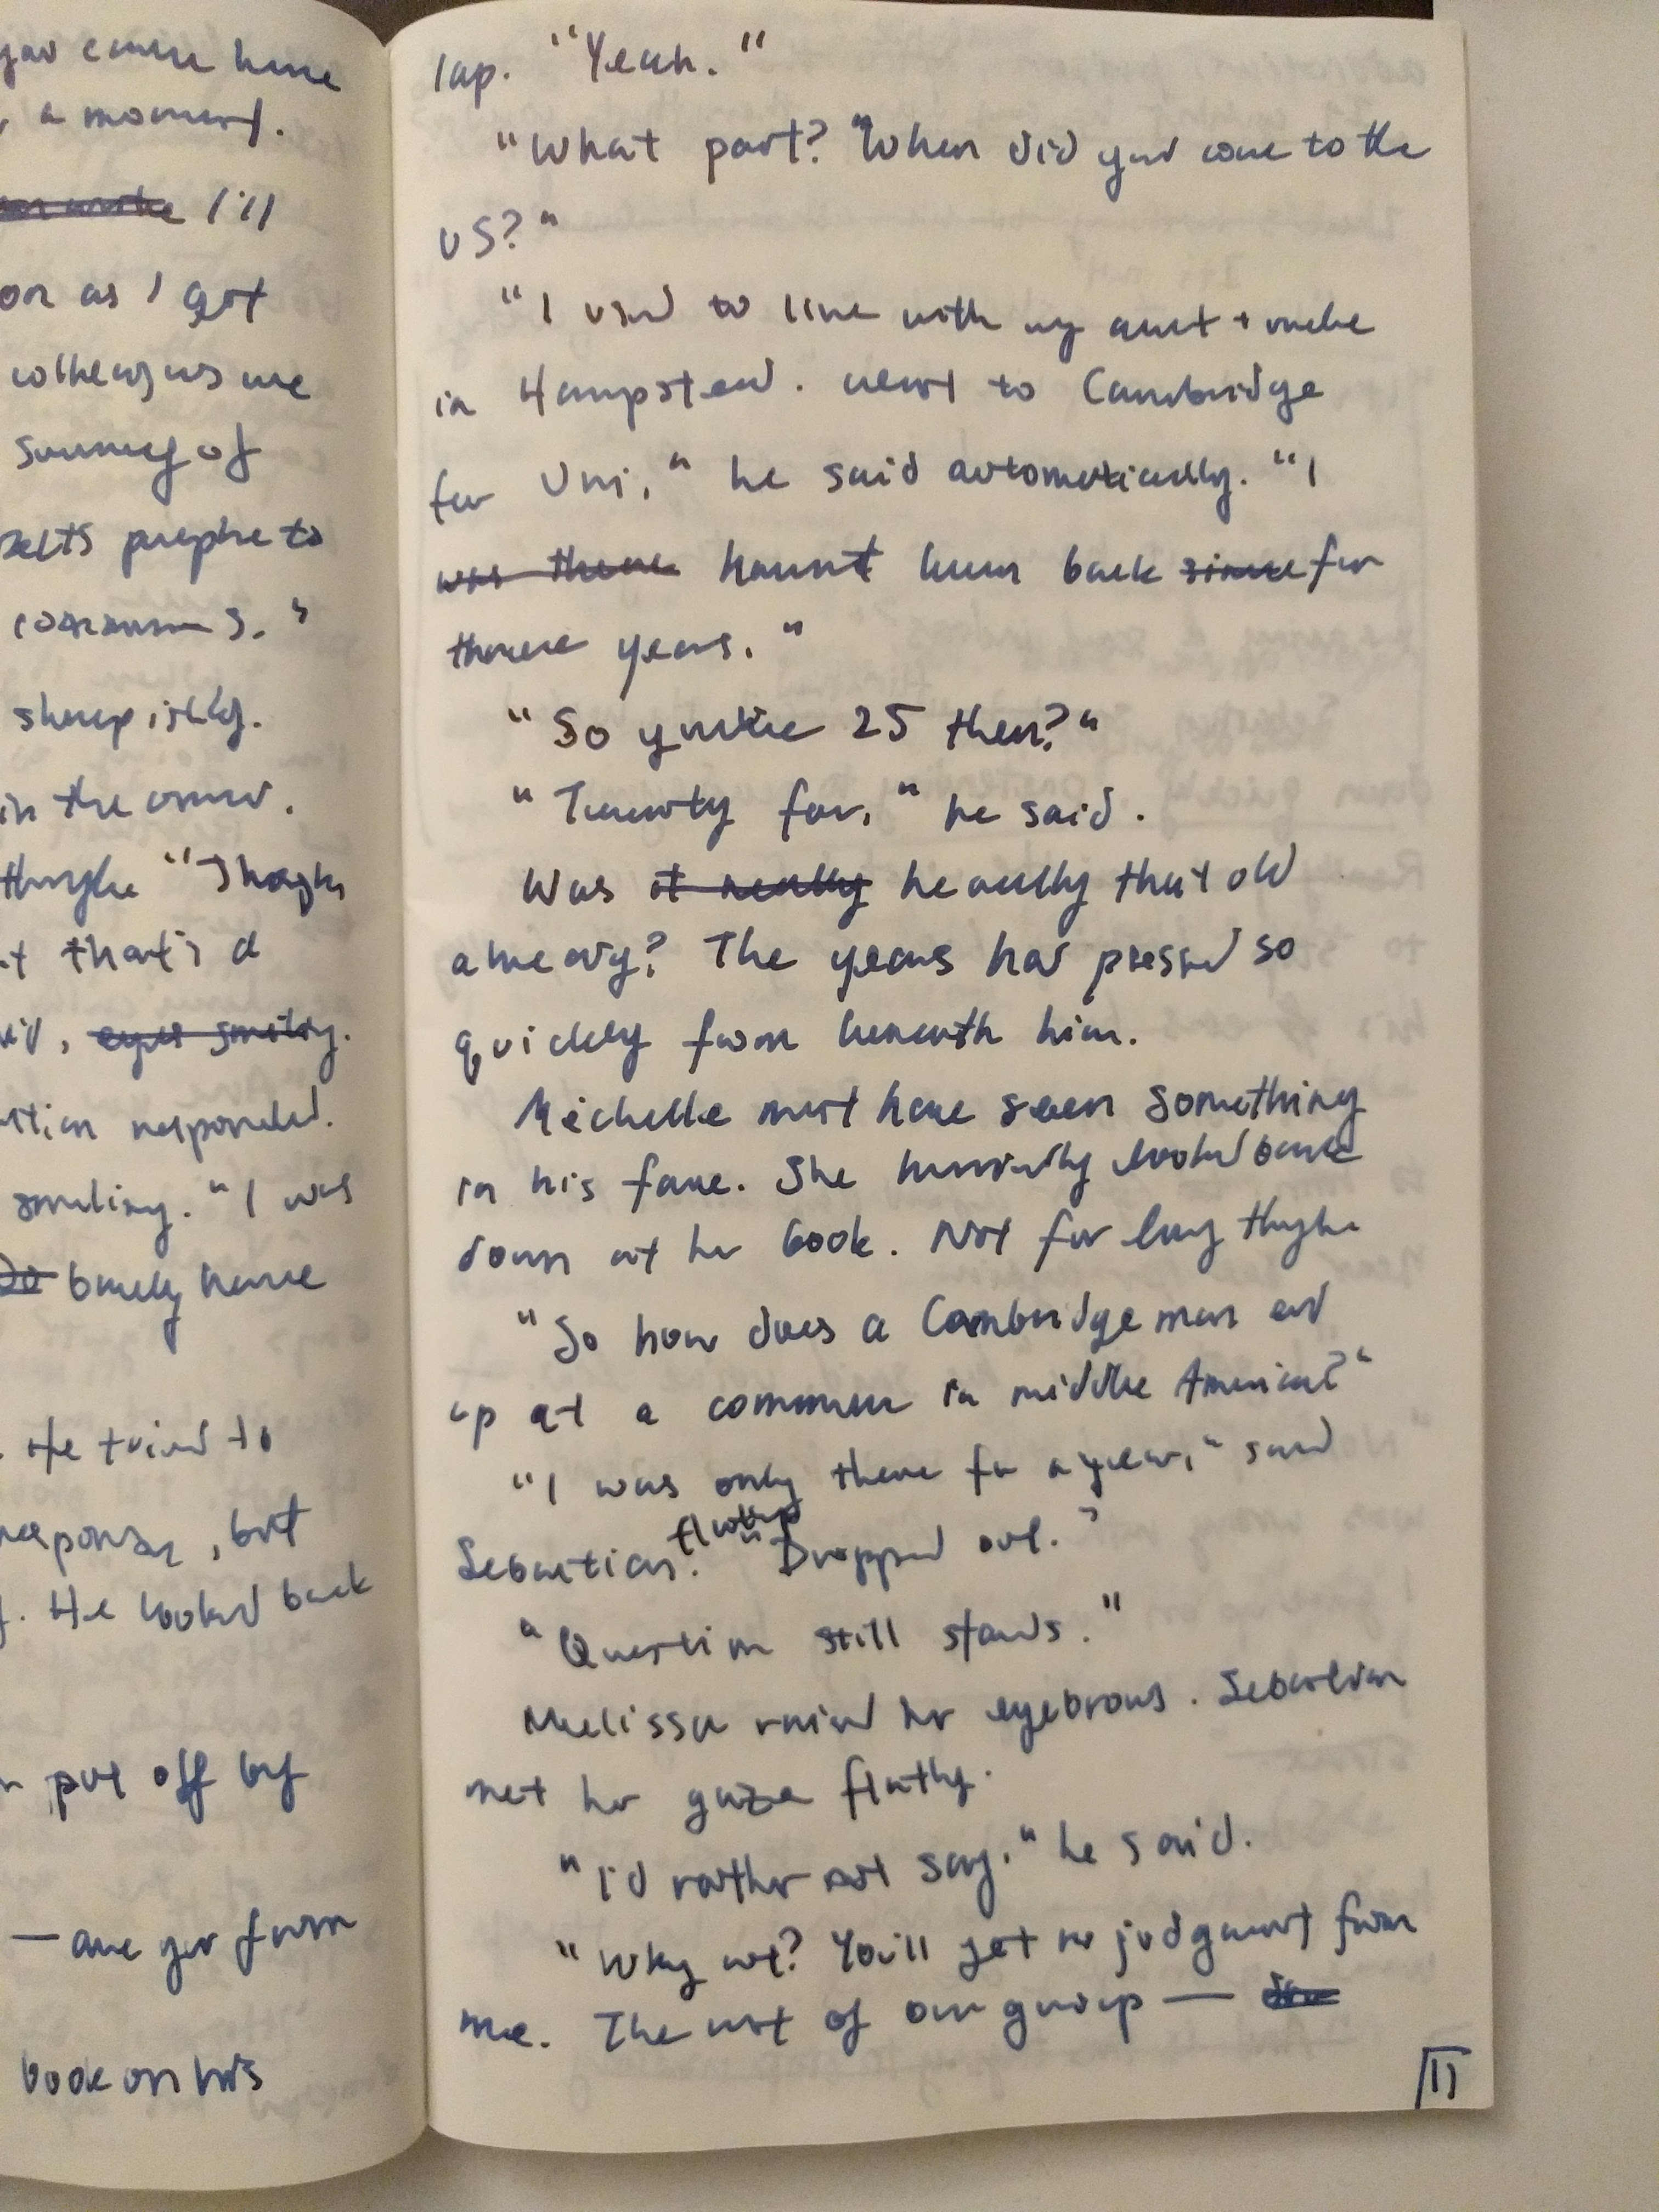 you came here
a moment.
I'll
on as I get
colleagues are
summery of
people to
commune."
sheepishly.
in the onus.
though "Though
that's a
eyes smiling.
responded.
smiling. "I was
barely have
He tried to
response, but
. He looked back
put off by
— are you from
book on his
lap. "Yeah."
"What part? When did you come to the
US?"
"I used to live with my aunt + uncle
in Hampstead. went to Cambridge
for Uni," he said automatically. "I
was there haven't been back since for
three years."
"So you're 25 then?"
"Twenty four," he said.
Was it really he really that old
already? The years had passed so
quickly from beneath him.
Michelle must have seen something
in his face. She hurriedly looked back
down at her book. Not for long though
"So how does a Cambridge man end
up at a commune in middle America?"
"I was only there for a year," said
Sebastian. "Dropped out."
"Question still stands."
Melissa raised her eyebrows. Sebastian
met her gaze flatly.
"I'd rather not say," he said.
"Why not? You'll get no judgment from
me. The rest of our group —
11